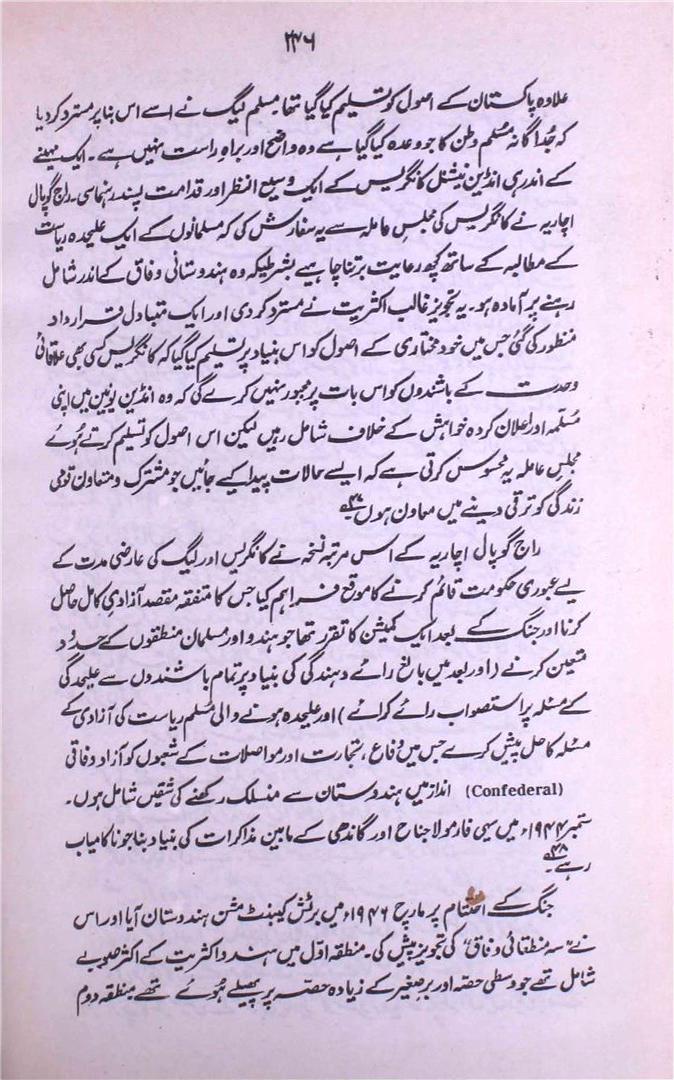 ۲۴۶
علاوہ پاکستان کے اصول کو تسلیم کیا گیا تھا۔ مسلم لیگ نے اسے اس بنا پر مسترد کر دیا
کہ جُداگانہ مُسلم وطن کا جو وعدہ کیا گیا ہے وہ واضح اور براہِ راست نہیں ہے۔ ایک مہینے
کے اندر ہی انڈین نیشنل کانگریس کے ایک وسیع النظر اور قدامت پسند رہنما سی۔ راج گوپال
اچاریہ نے کانگریس کی مجلسِ عاملہ سے یہ سفارش کی کہ مسلمانوں کے ایک علیحدہ ریاست
کے مطالبہ کے ساتھ کچھ رعایت برتنا چاہیے بشرطیکہ وہ ہندوستانی وفاق کے اندر شامل
رہنے پر آمادہ ہو۔ یہ تجویز غالب اکثریت نے مسترد کر دی اور ایک متبادل قرارداد
منظور کی گئی جس میں خود مختاری کے اصول کو اس بنیاد پر تسلیم کیا گیا کہ کانگریس کسی بھی علاقائی
وحدت کے باشندوں کو اس بات پر مجبور نہیں کرے گی کہ وہ انڈین یونین میں اپنی
مُسلّمہ اور اعلان کردہ خواہش کے خلاف شامل رہیں لیکن اس اصول کو تسلیم کرتے ہُوئے
مجلسِ عاملہ یہ محسوس کرتی ہے کہ ایسے حالات پیدا کیے جائیں جو مشترک و متعاون قومی
زندگی کو ترقی دینے میں معاون ہوں۔
راج گوپال اچاریہ کے اس مرتبہ نسخہ نے کانگریس اور لیگ کی عارضی مدت کے
لیے عبوری حکومت قائم کرنے کا موقع فراہم کیا جس کا متفقہ مقصد آزادیِ کامل حاصل
کرنا اور جنگ کے بعد ایک کمیشن کا تقرر تھا جو ہندو اور مسلمان منطقوں کے حدود
متعین کرنے (اور بعد میں بالغ رائے دہندگی کی بنیاد پر تمام باشندوں سے علیحدگی
کے مسئلہ پر استصواب رائے کرائے) اور علیحدہ ہونے والی مُسلم ریاست کی آزادی کے
مسئلہ کا حل پیش کرے جس میں دفاع، تجارت اور مواصلات کے شعبوں کو آزاد وفاقی
(Confederal) انداز میں ہندوستان سے منسلک رکھنے کی شقیں شامل ہوں۔
ستمبر ۱۹۴۴ء میں یہی فارمولا جناح اور گاندھی کے مابین مذاکرات کی بنیاد بنا جو ناکامیاب
رہے۔۴۸
جنگ کے اختتام پر مارچ ۱۹۴۶ء میں برٹش کیبنٹ مشن ہندوستان آیا اور اس
نے "سہ منطقائی وفاق" کی تجویز پیش کی۔ منطقہ اوّل میں ہندو اکثریت کے اکثر صوبے
شامل تھے جو وسطی حصہ اور برصغیر کے زیادہ حصہ پر پھیلے ہُوئے تھے منطقہ دوم